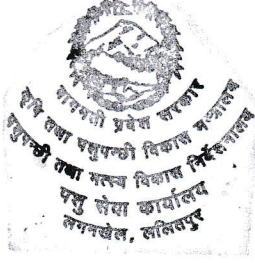 बागमती प्रदेश सरकार
कृषि तथा पशुपन्छी विकास मन्त्रालय
पशुपन्छी तथा मत्स्य विकास निर्देशनालय
पशु सेवा कार्यालय
लगनखेल, ललितपुर